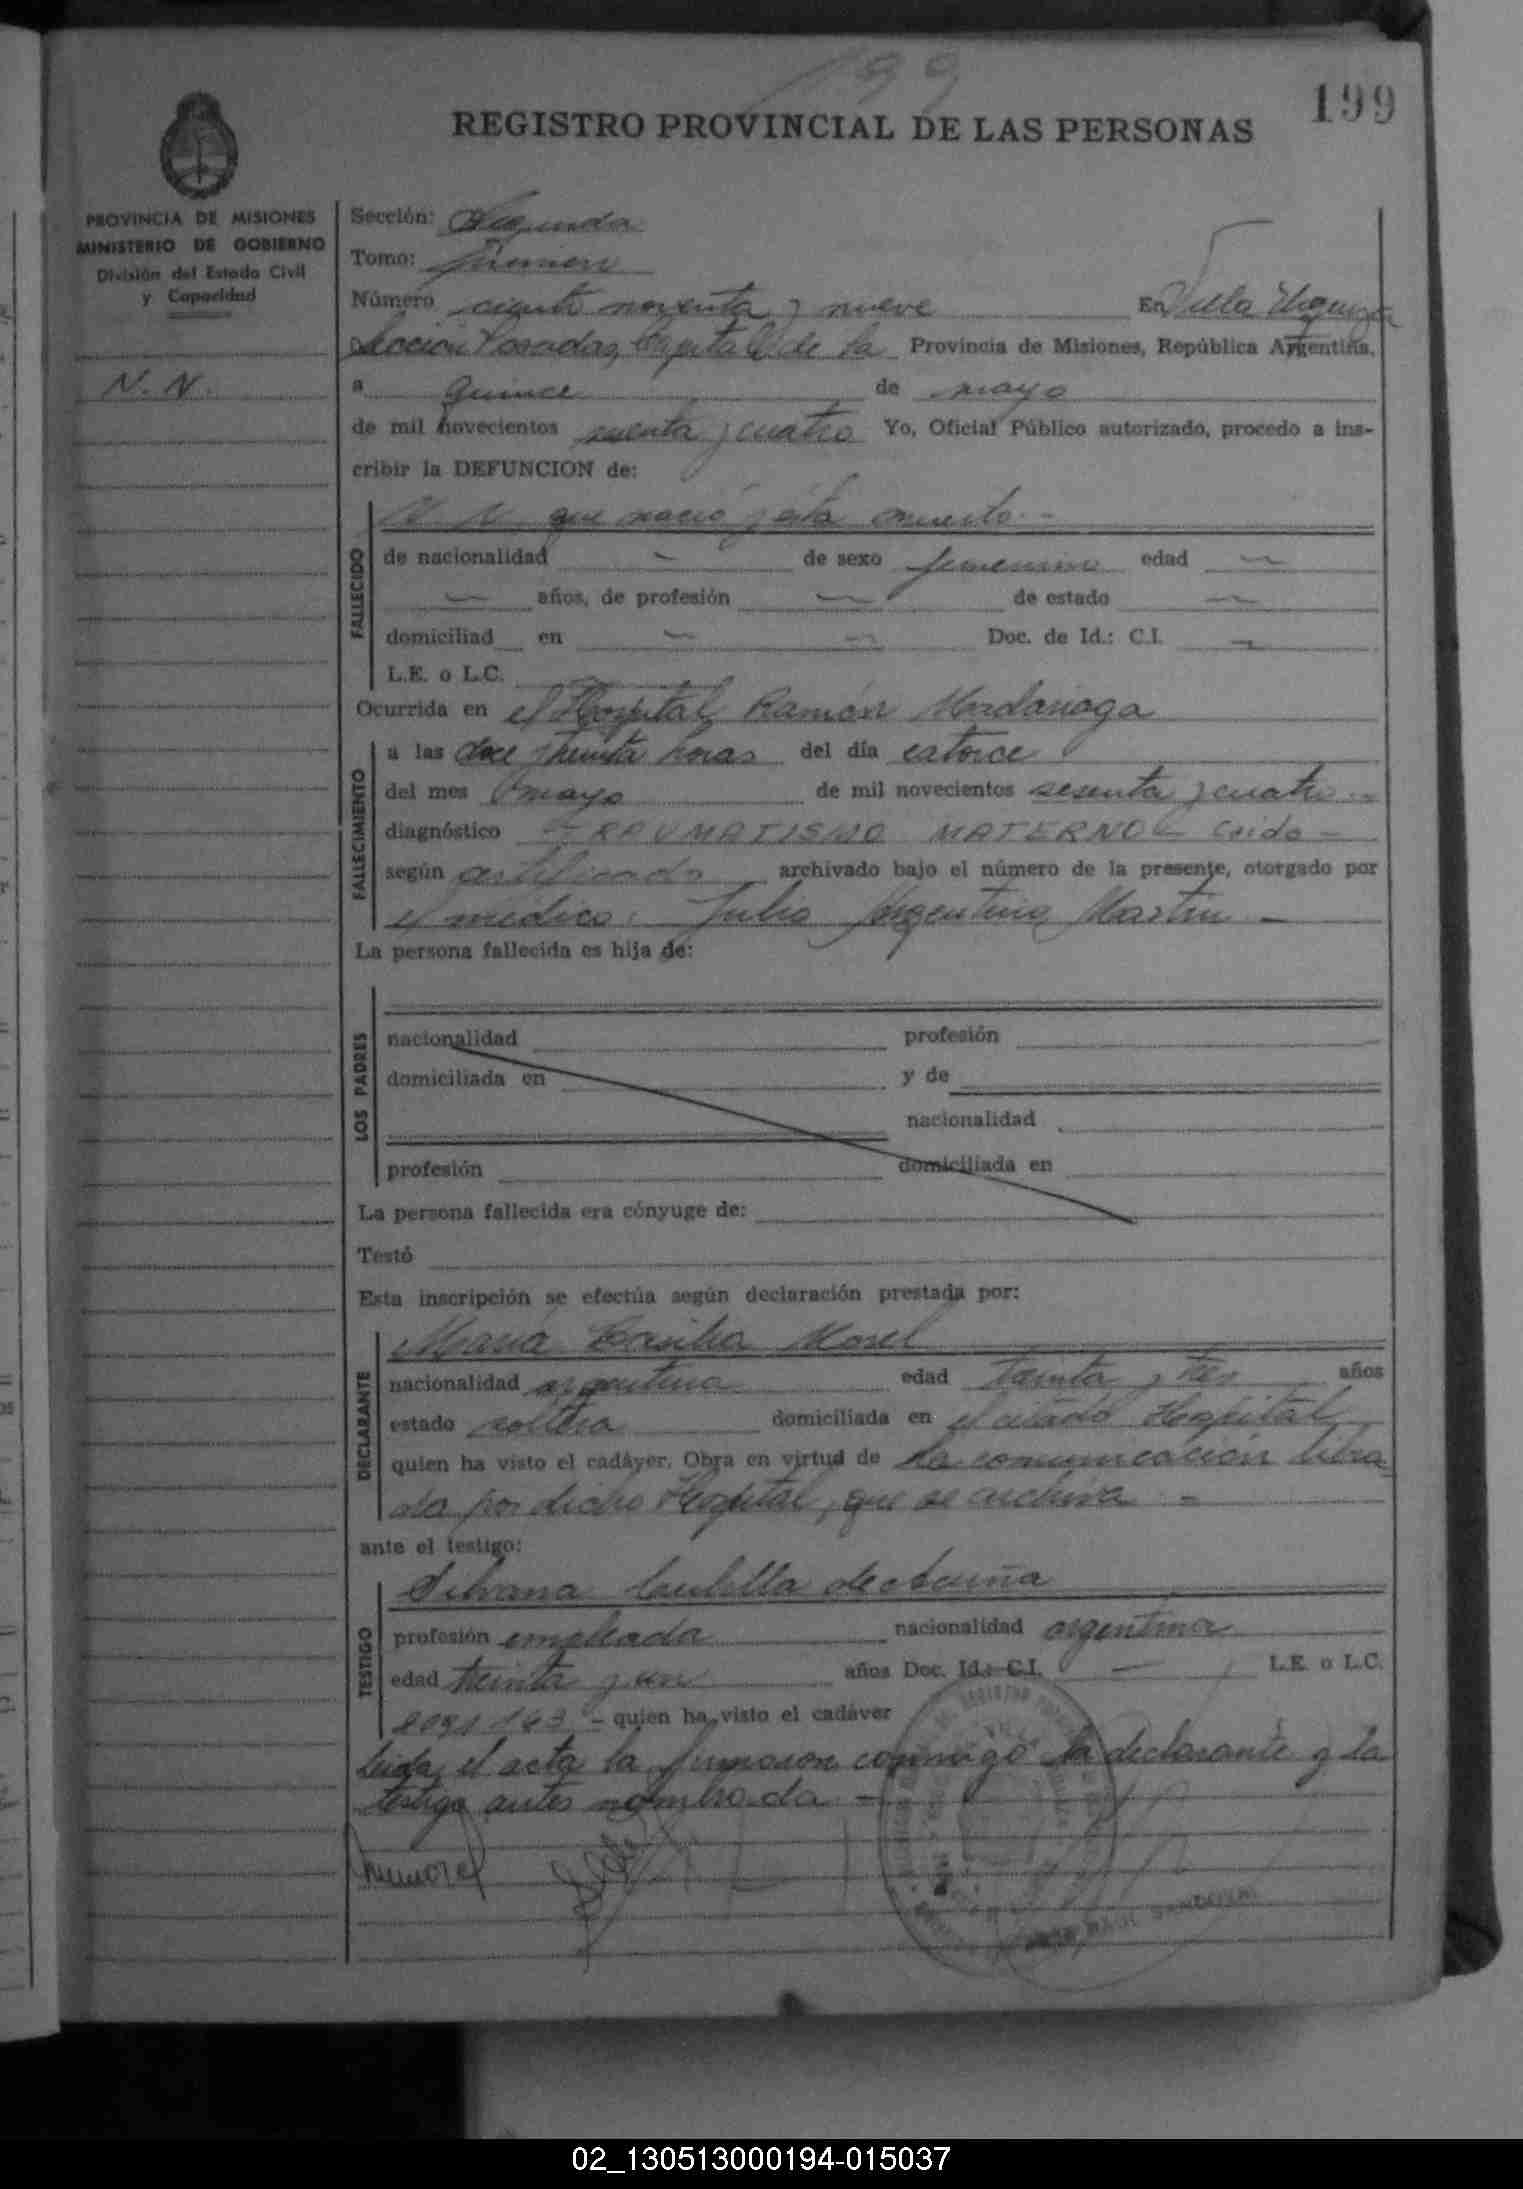 199
199
REGISTRO PROVINCIAL DE LAS PERSONAS
PROVINCIA DE MISIONES
MINISTERIO DE GOBIERNO
División del Estado Civil
y Capacidad
N. N.
Sección: Segunda
Tomo: primero
Número ciento noventa y nueve En Villa Urquiza
Sección Posadas, Capital de la Provincia de Misiones, República Argentina,
a quince de mayo
de mil novecientos sesenta y cuatro Yo, Oficial Público autorizado, procedo a ins-
cribir la DEFUNCION de:
FALLECIDO
N N que nació y está muerto --
de nacionalidad — de sexo femenino edad —
— años, de profesión — de estado —
domiciliad en — — Doc. de Id.: C.I. —
L.E. o L.C.
Ocurrida en el Hospital Ramón Madariaga
FALLECIMIENTO
a las doce y treinta horas del día catorce
del mes mayo de mil novecientos sesenta y cuatro --
diagnóstico TRAUMATISMO MATERNO
según certificado archivado bajo el número de la presente, otorgado por
el médico: Julio Argentino Martin -
La persona fallecida es hija de:
LOS PADRES
nacionalidad profesión
domiciliada en y de
nacionalidad
profesión domiciliada en
La persona fallecida era cónyuge de:
Testó
Esta inscripción se efectúa según declaración prestada por:
DECLARANTE
María Morel
nacionalidad argentina edad treinta y tres años
estado soltera domiciliada en el citado Hospital
quien ha visto el cadáver. Obra en virtud de la comunicación libra-
da por dicho Hospital, que se archiva -
ante el testigo:
TESTIGO
Silvana de Acuña
profesión empleada nacionalidad argentina
edad treinta y un años Doc. Id.: C.I. — L.E. o L.C.
- quien ha visto el cadáver
Leida el acta la firmaron conmigo la declarante y la
testigo antes nombrada -
02_130513000194-015037